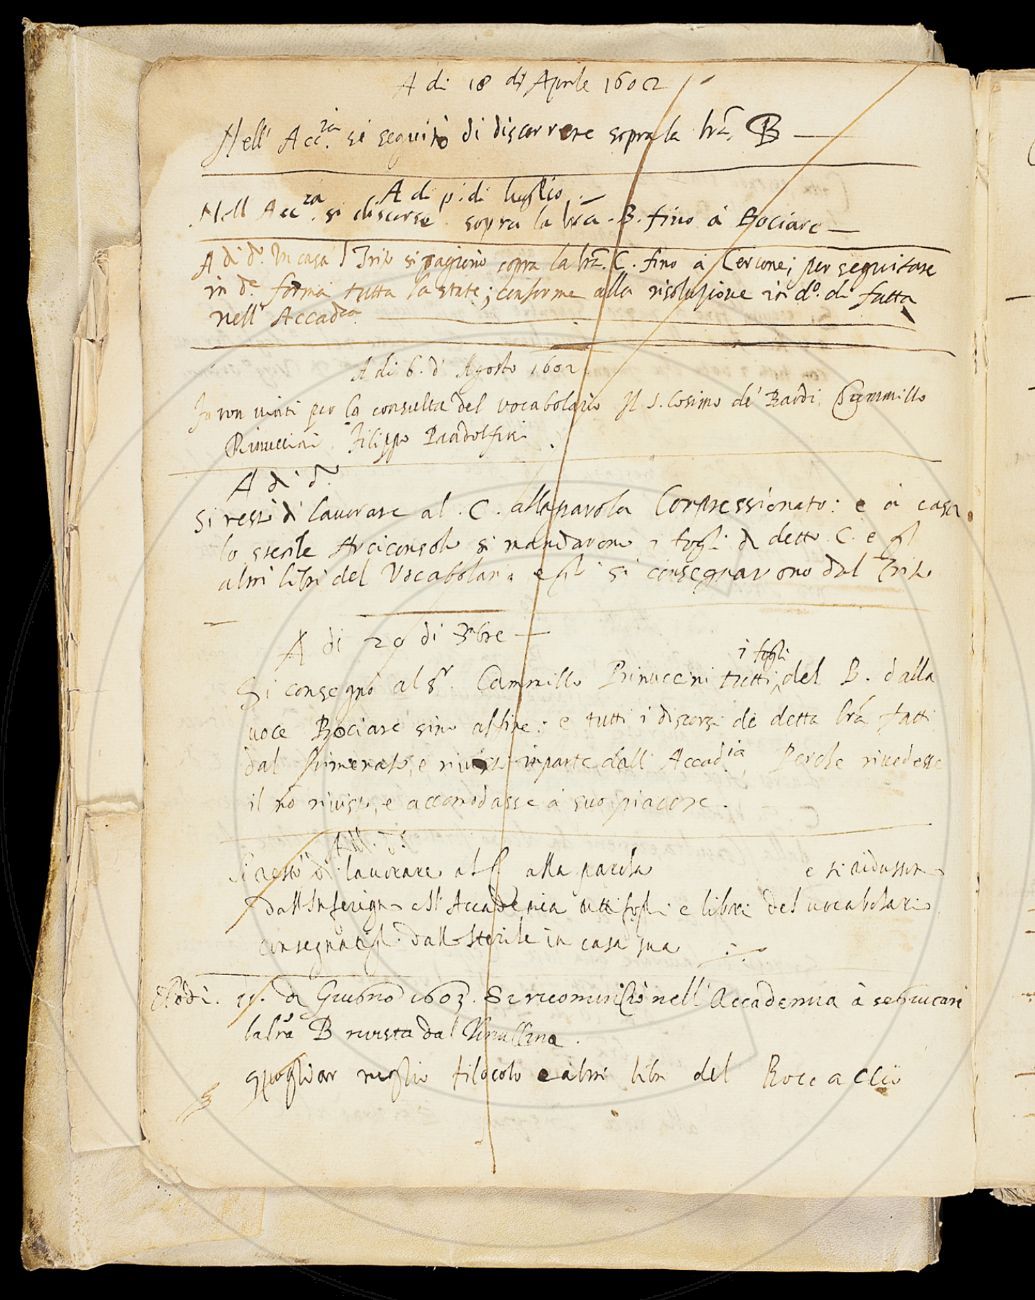 A di 18 di Aprile 1602
Nell' Acc.ia si seguitò di discorrere sopra la lr̃a B
A di p.º di luglio
Nell Acc.za si discorse sopra la lr̃a B. fino à Bociare
A di d.º In casa l Trito si ragionò sopra la lr̃a C. fino à Cercone; per seguitare
in d.ª forma tutta la state; conforme alla risoluzione in d.º di fatta
nell' Accad.ia
A di 6. d' Agosto 1602
Furon vinti per la consulta del vocabolario Il S. Cosimo de' Bardi, Cammillo
Rinuccini Filippo Pandolfini
A di d.º
Si restò di lavorare al C. alla parola Compressionato: e à casa
lo sterile Arciconsolo si mandarono i fogli di detto C. e gl
altri libri del Vocabolario e gli si consegnarono dal Trito
A di 29 di 9bre
Si consegnò al S.r Cammillo Rinuccini tutti i fogli del B. dalla
voce Bociare sino alfine: e tutti i discorsi de detta lr̃a, fatti
dal Rimenato, e rivisto in parte dall' Accad.ia Perche rivedesse
il nõ rivisto, e accomodasse à suo piacere.
A di d.º
Si restò di lavorare al C alla parola e si ridussono
dall Inferigno e ll' Accademia tutti fogli e libri del vocabolario
consegnatigli dallo sterile in casa sua
A di . di Giugno 1603. Si ricominciò nell' Accademia à seguitare
la lr̃a B rivista dal Rinuccino.
Spogliar meglio filocolo e altri libri del Boccaccio